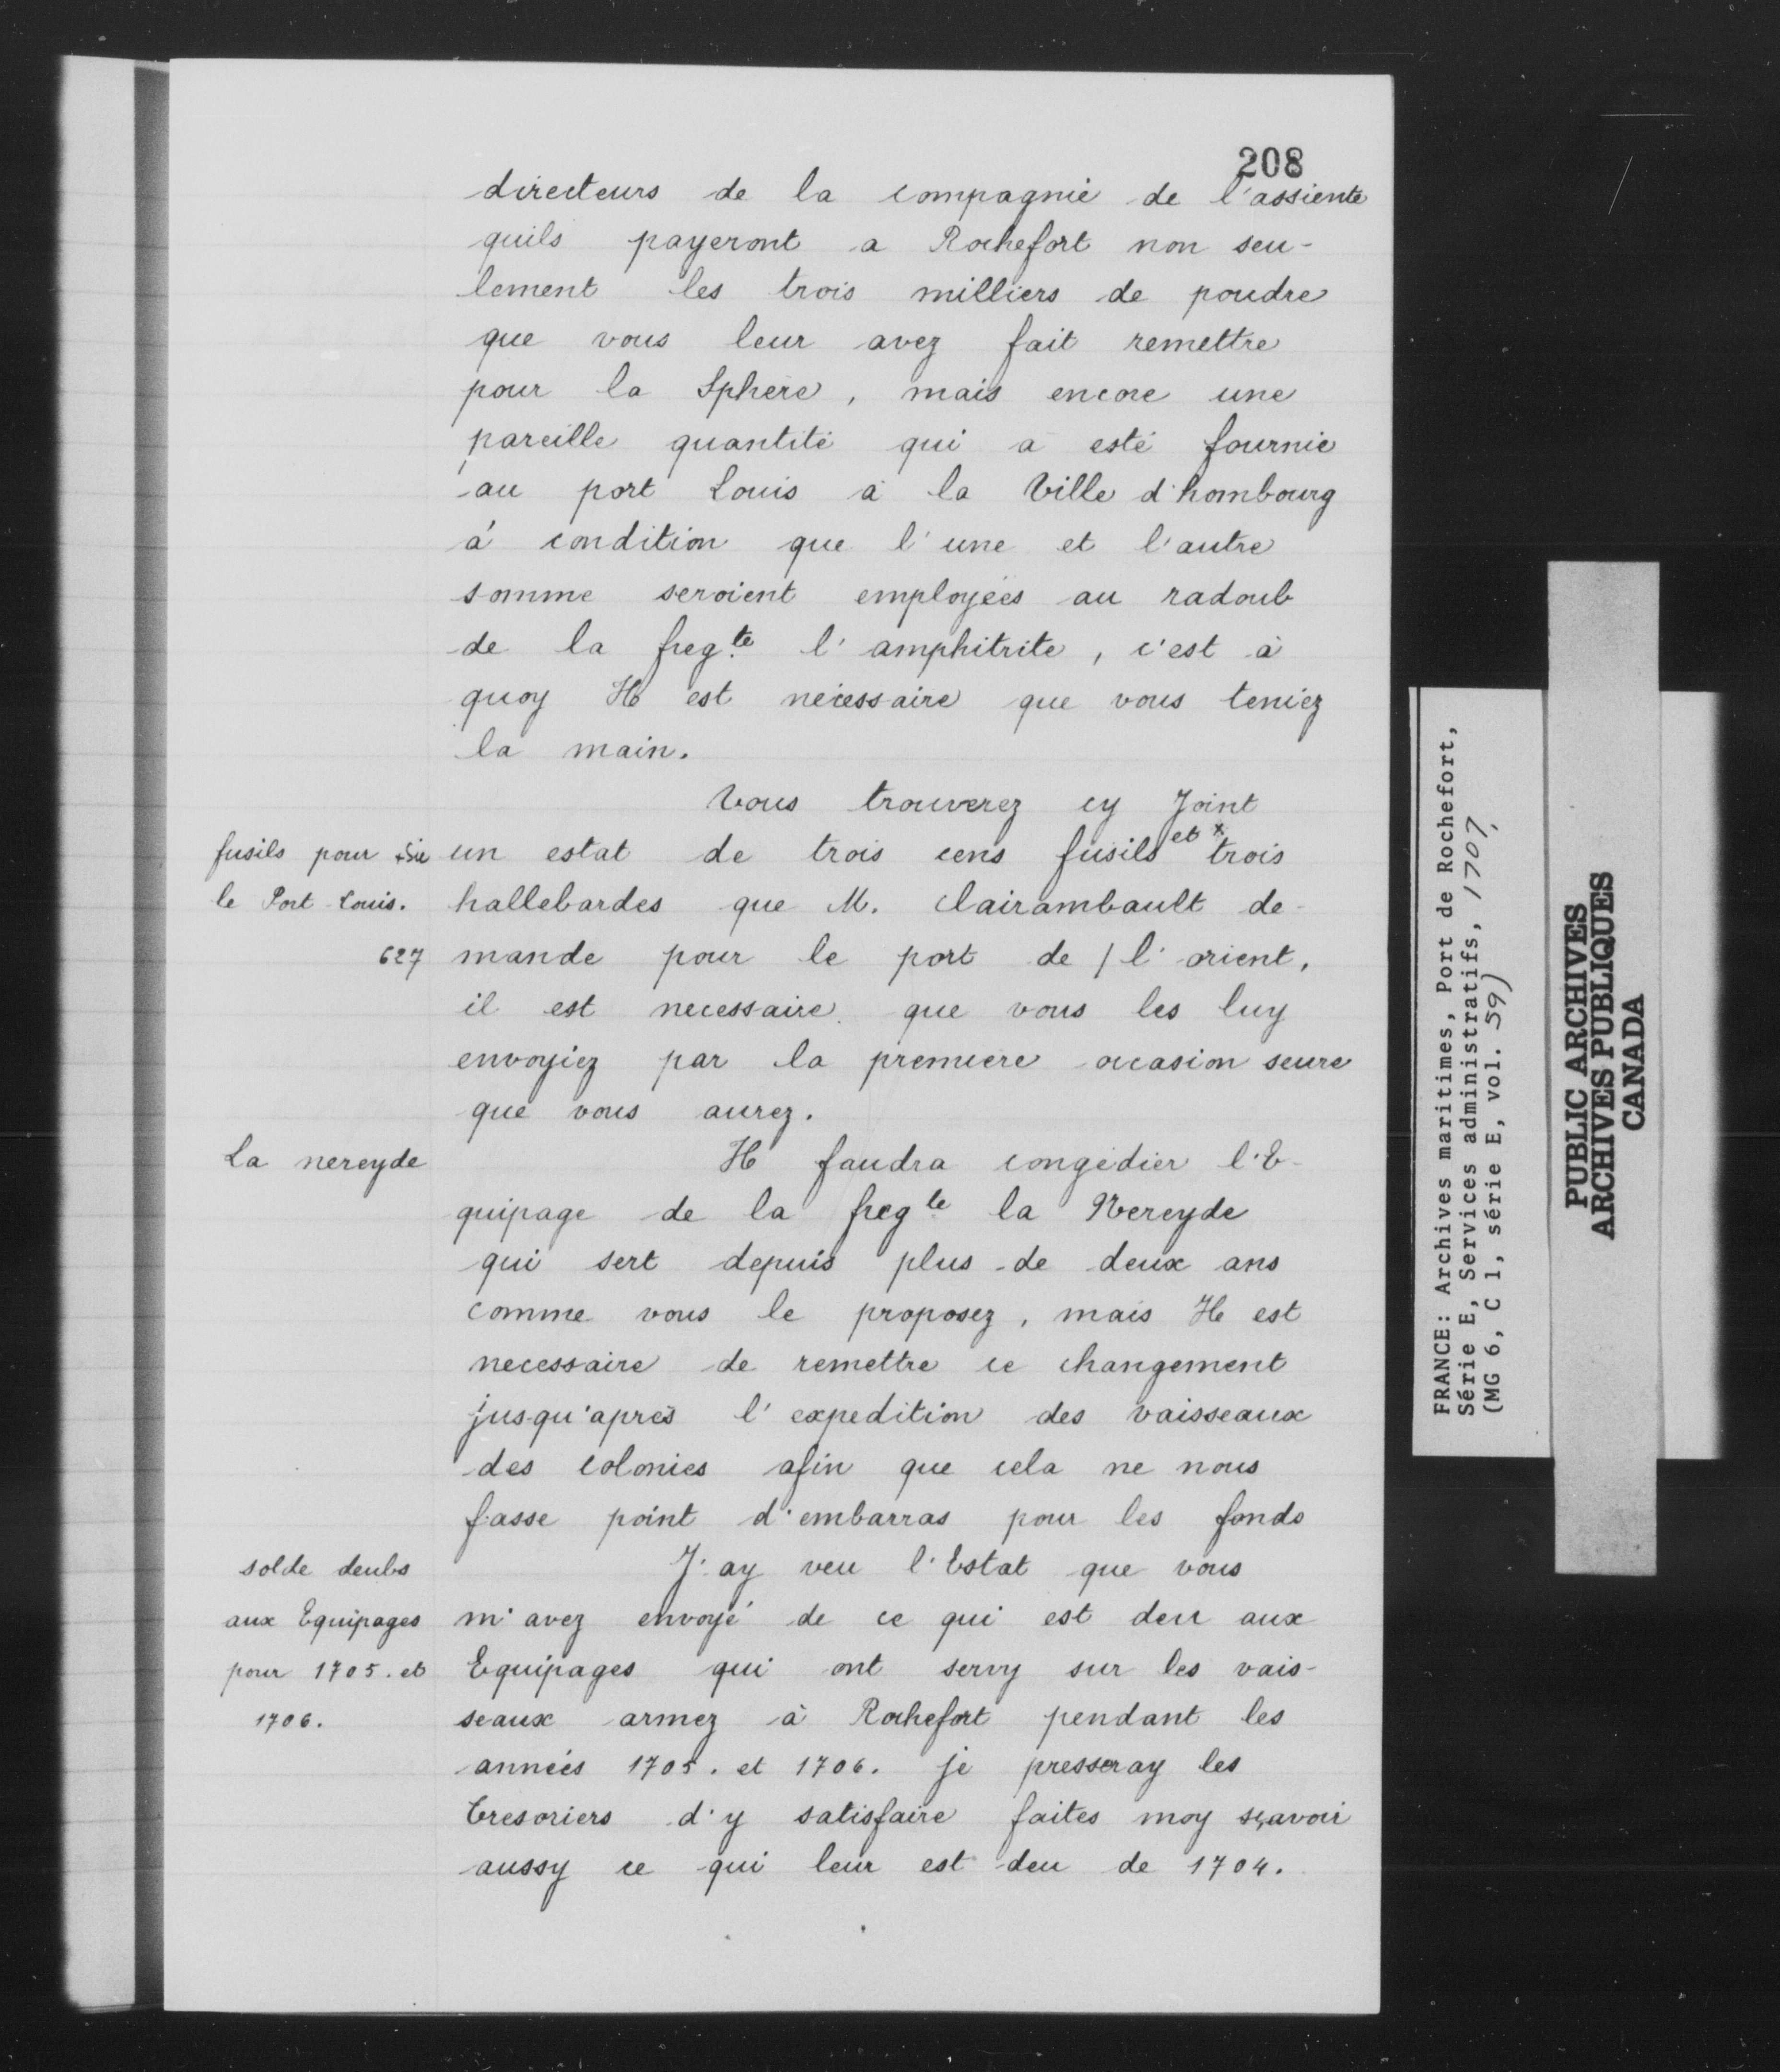 208
directeurs de la compagnie de l'assiente
quils payeront a Rochefort non seu-
lement les trois milliers de poudre
que vous leur avez fait remettre
pour la Sphere, mais encore une
pareille quantité qui a esté fournie
au port Louis à la Ville d'hombourg
à condition que l'une et l'autre
somme seroient employées au radoub
de la fregte l'amphitrite, c'est à
quoy Il est nécessaire que vous teniez
la main.
Vous trouverez cy Joint
fusils pour
un estat de trois cens fusils et x trois
le Port Louis.
hallebardes que M. Clairambault de-
627
mande pour le port de / l'orient,
il est necessaire que vous les luy
envoyiez par la premiere ocasion seure
que vous aurez.
La nereyde
Il faudra congédier l'E-
quipage de la fregte la Nereyde
qui sert depuis plus de deux ans
comme vous le proposez, mais Il est
necessaire de remettre ce changement
jusqu'aprés l'expedition des vaisseaux
des colonies afin que cela ne nous
fasse point d'embarras pour les fonds
solde deubs
J'ay veu l'Estat que vous
aux Equipages
m'avez envoyé de ce qui est deu aux
pour 1705. et
Equipages qui ont servy sur les vais-
1706.
seaux armez à Rochefort pendant les
années 1705. et 1706. je presseray les
tresoriers d'y satisfaire faites moy sçavoir
aussy ce qui leur est deu de 1704.
FRANCE: Archives maritimes, Port de Rochefort,
Série E, Services administratifs, 1707,
(MG 6, C 1, série E, vol. 59)
PUBLIC ARCHIVES
ARCHIVES PUBLIQUES
CANADA